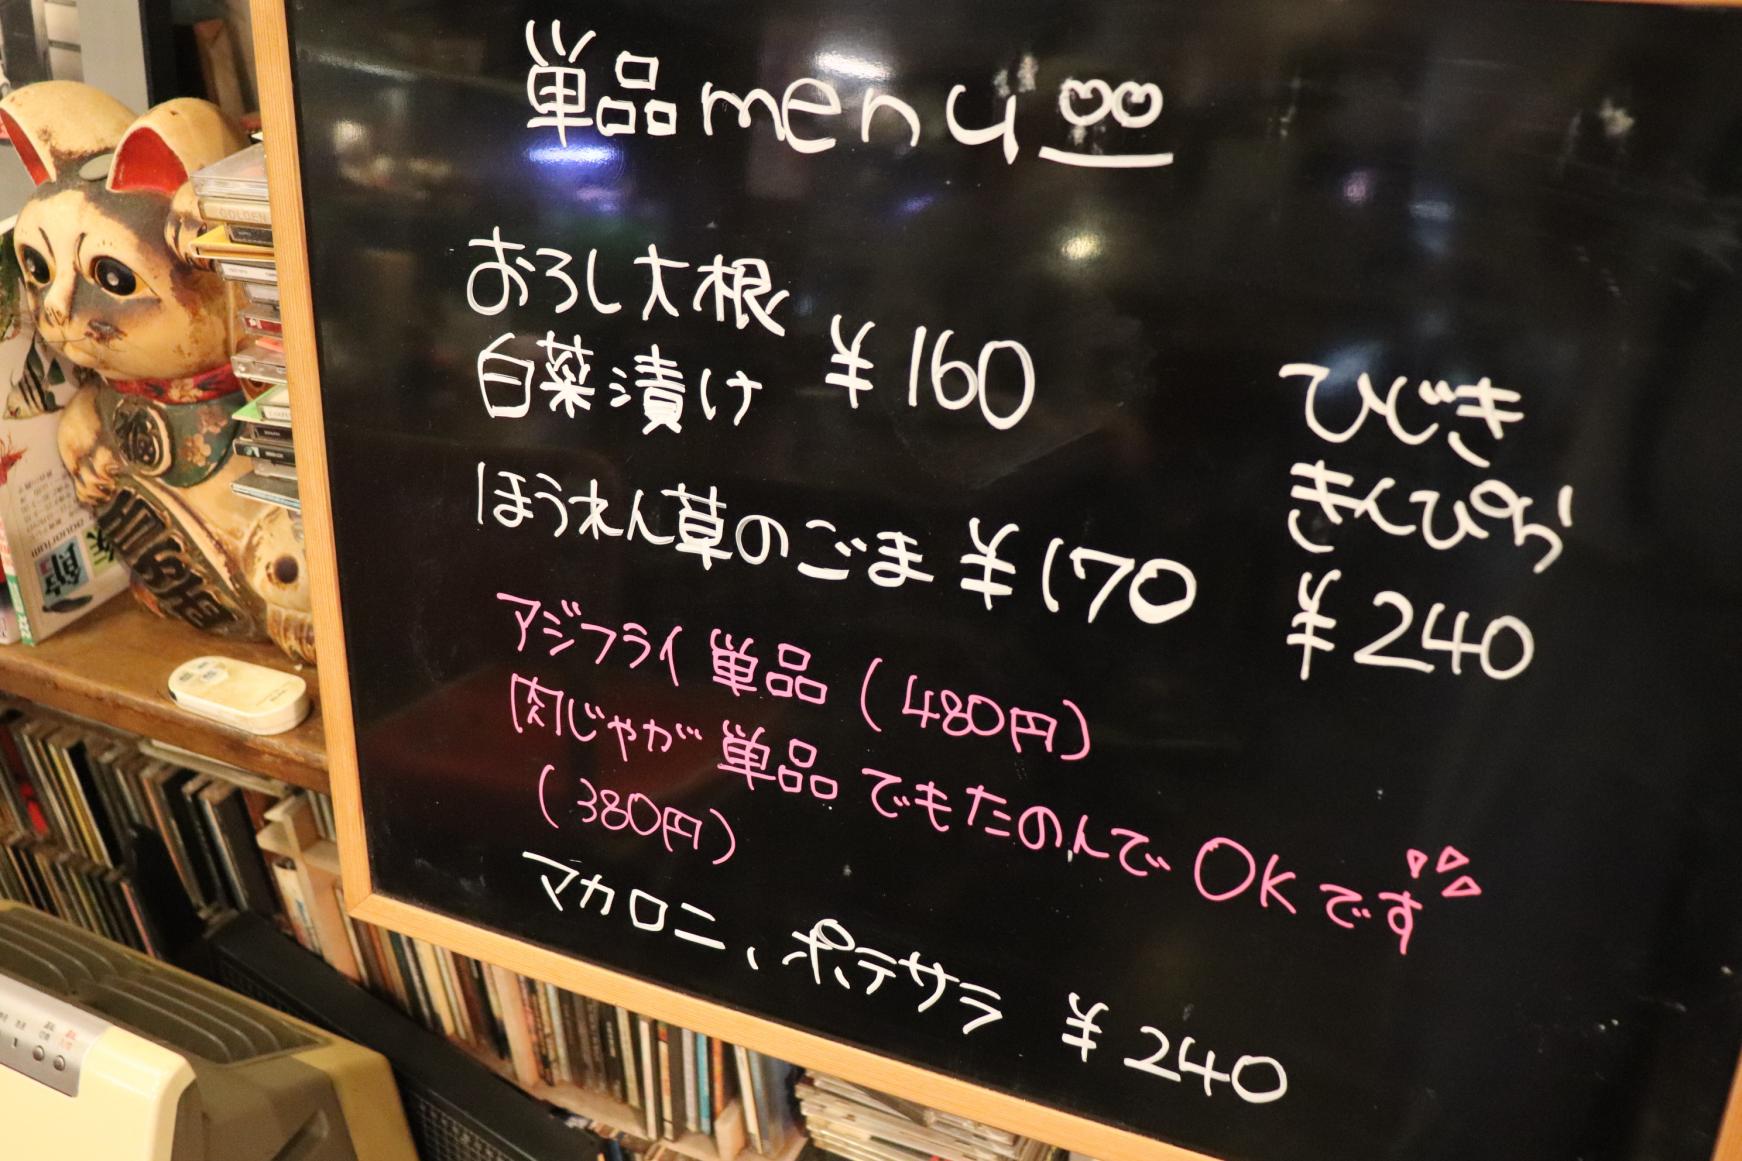 単品menu
おろし大根
白菜漬け ¥160
ほうれん草のごま ¥170
ひじき
きんぴら
¥240
アジフライ 単品 (480円)
肉じゃが 単品 でもたのんでOKです
(380円)
マカロニ、ポテサラ ¥240
aquarium
GOLDEN